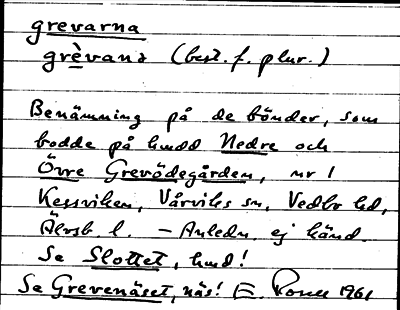 grevarna
grèvana (best. f. plur.)
Benämning på de bönder, som
bodde på hmd Nedre och
Övre Grevödegården, nr 1
Kessviken, Vårviks sn, Vedbo hd,
Älvsb. l. – Anledn. ej känd.
Se Slottet, hmd!
Se Grevenäset, näs! E. 1961